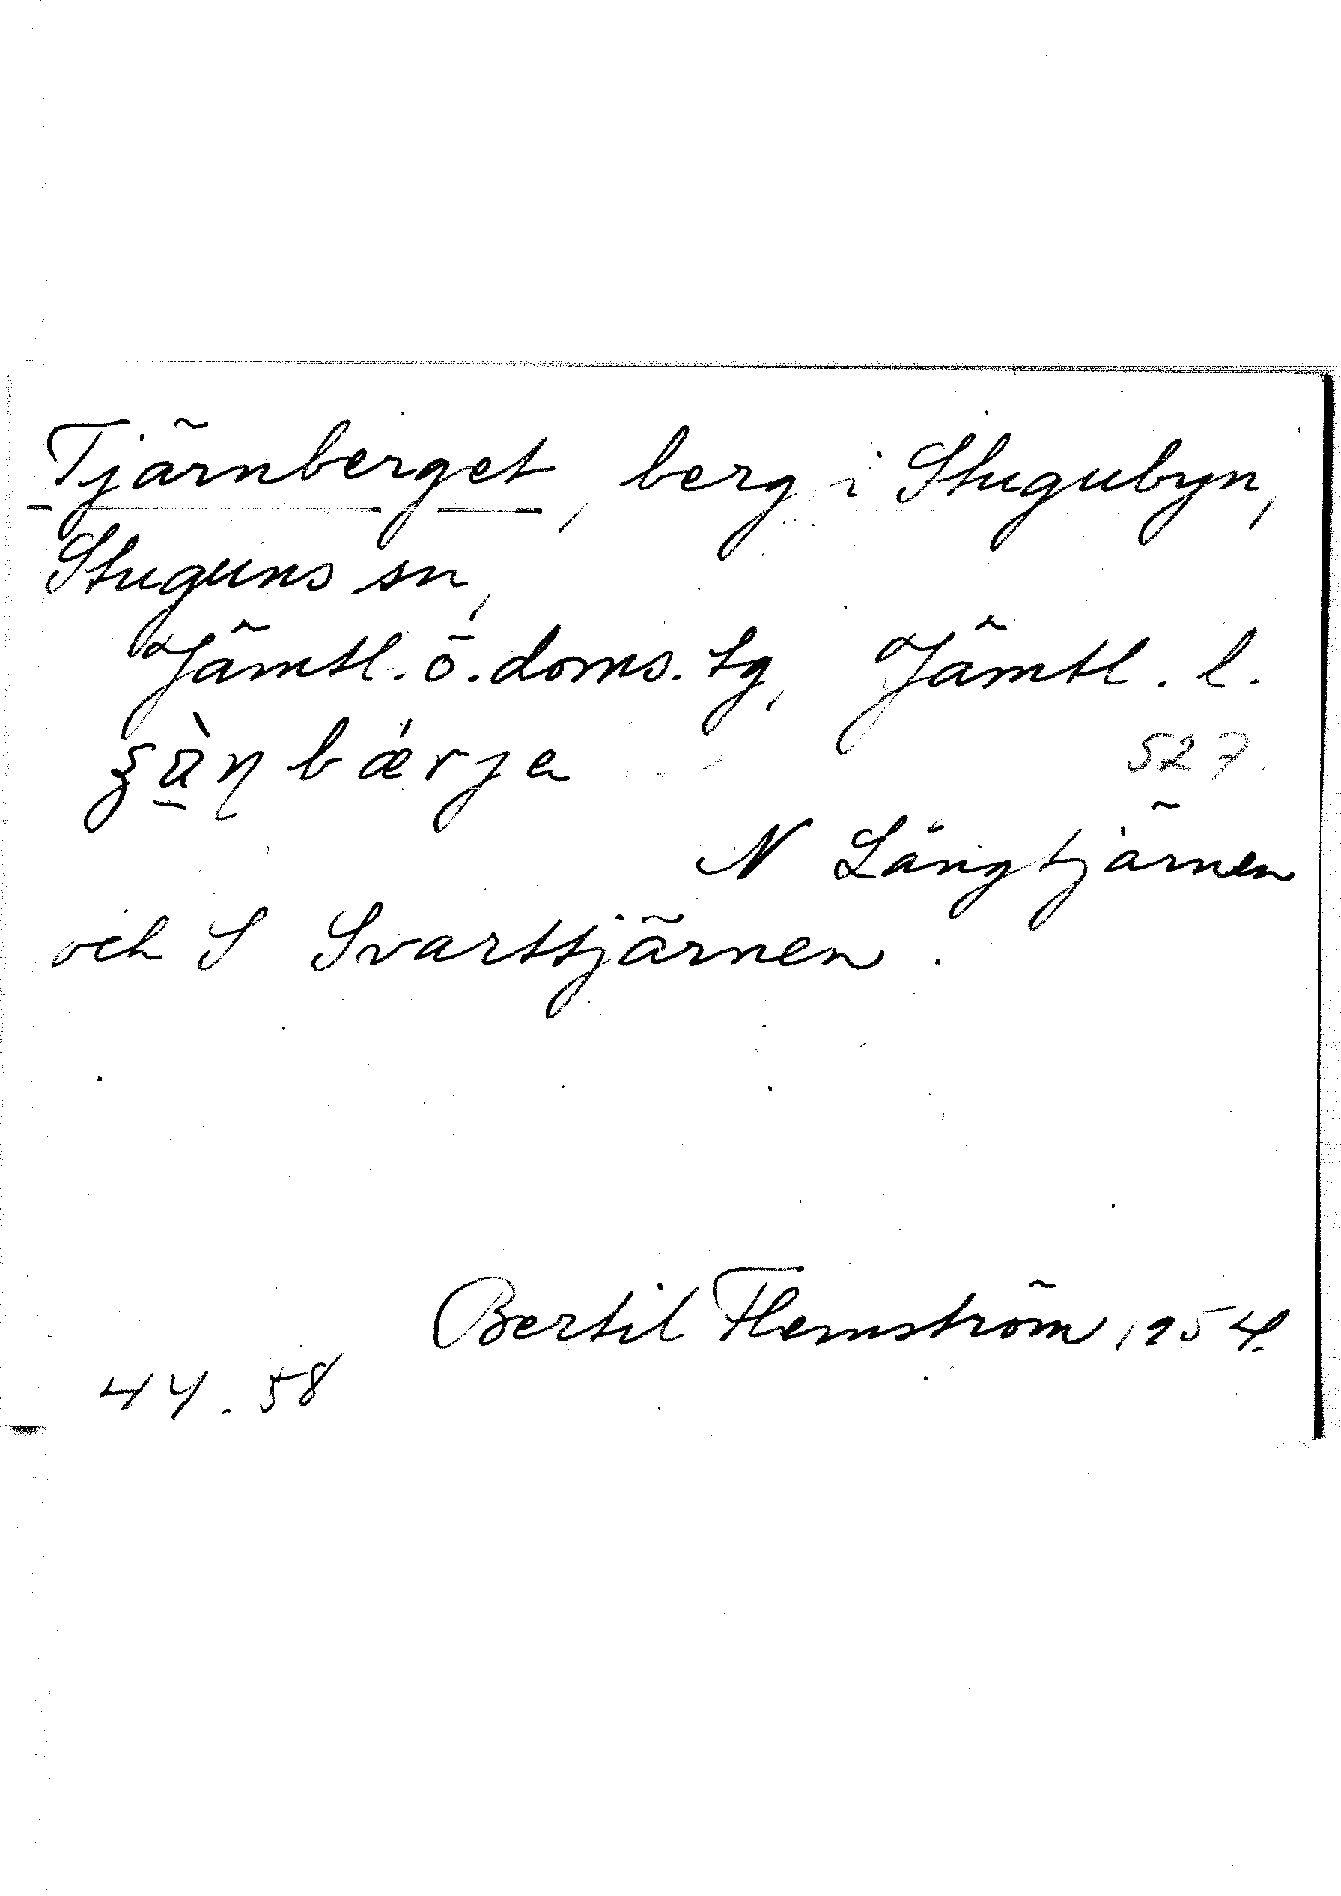 Tjärnberget, berg i Stugubyn,
Stuguns sn,
Jämtl. ö. doms. tg, Jämtl. l.
bǽrja
527
N Långtjärnen
och S Svarttjärnen.
Bertil Flemström 1954.
44.58